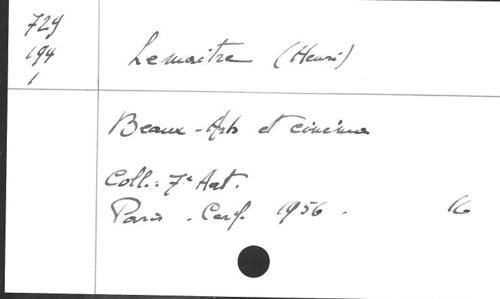 729
194
1
Lemaitre (Henri)
Beaux-Arts et cinéma
Coll.: 7e Art.
Paris. Cerf. 1956. 16